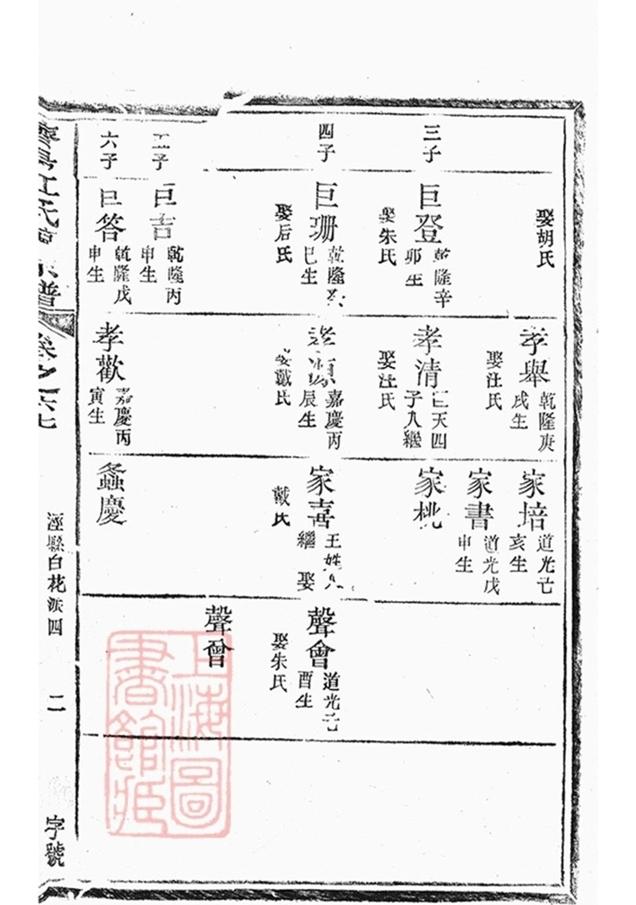 娶胡氏
三子
巨登
乾隆辛
卯生
娶朱氏
四子
巨珊
乾隆
巳生
娶后氏
五子
巨吉
乾隆丙
申生
六子
巨答
乾隆戊
申生
孝舉
乾隆庚
戌生
娶汪氏
孝清
巨天四
子入繼
娶汪氏
孝順
嘉慶丙
辰生
娶戴氏
孝歡
嘉慶丙
寅生
家培
道光
亥生
家書
道光戊
申生
家桃
家喜
王姓入
繼 娶
戴氏
螽慶
聲會
道光
酉生
娶朱氏
聲會
濟陽江氏宗譜
卷之六七
涇縣白花派四
二
字號
上海圖
書館藏